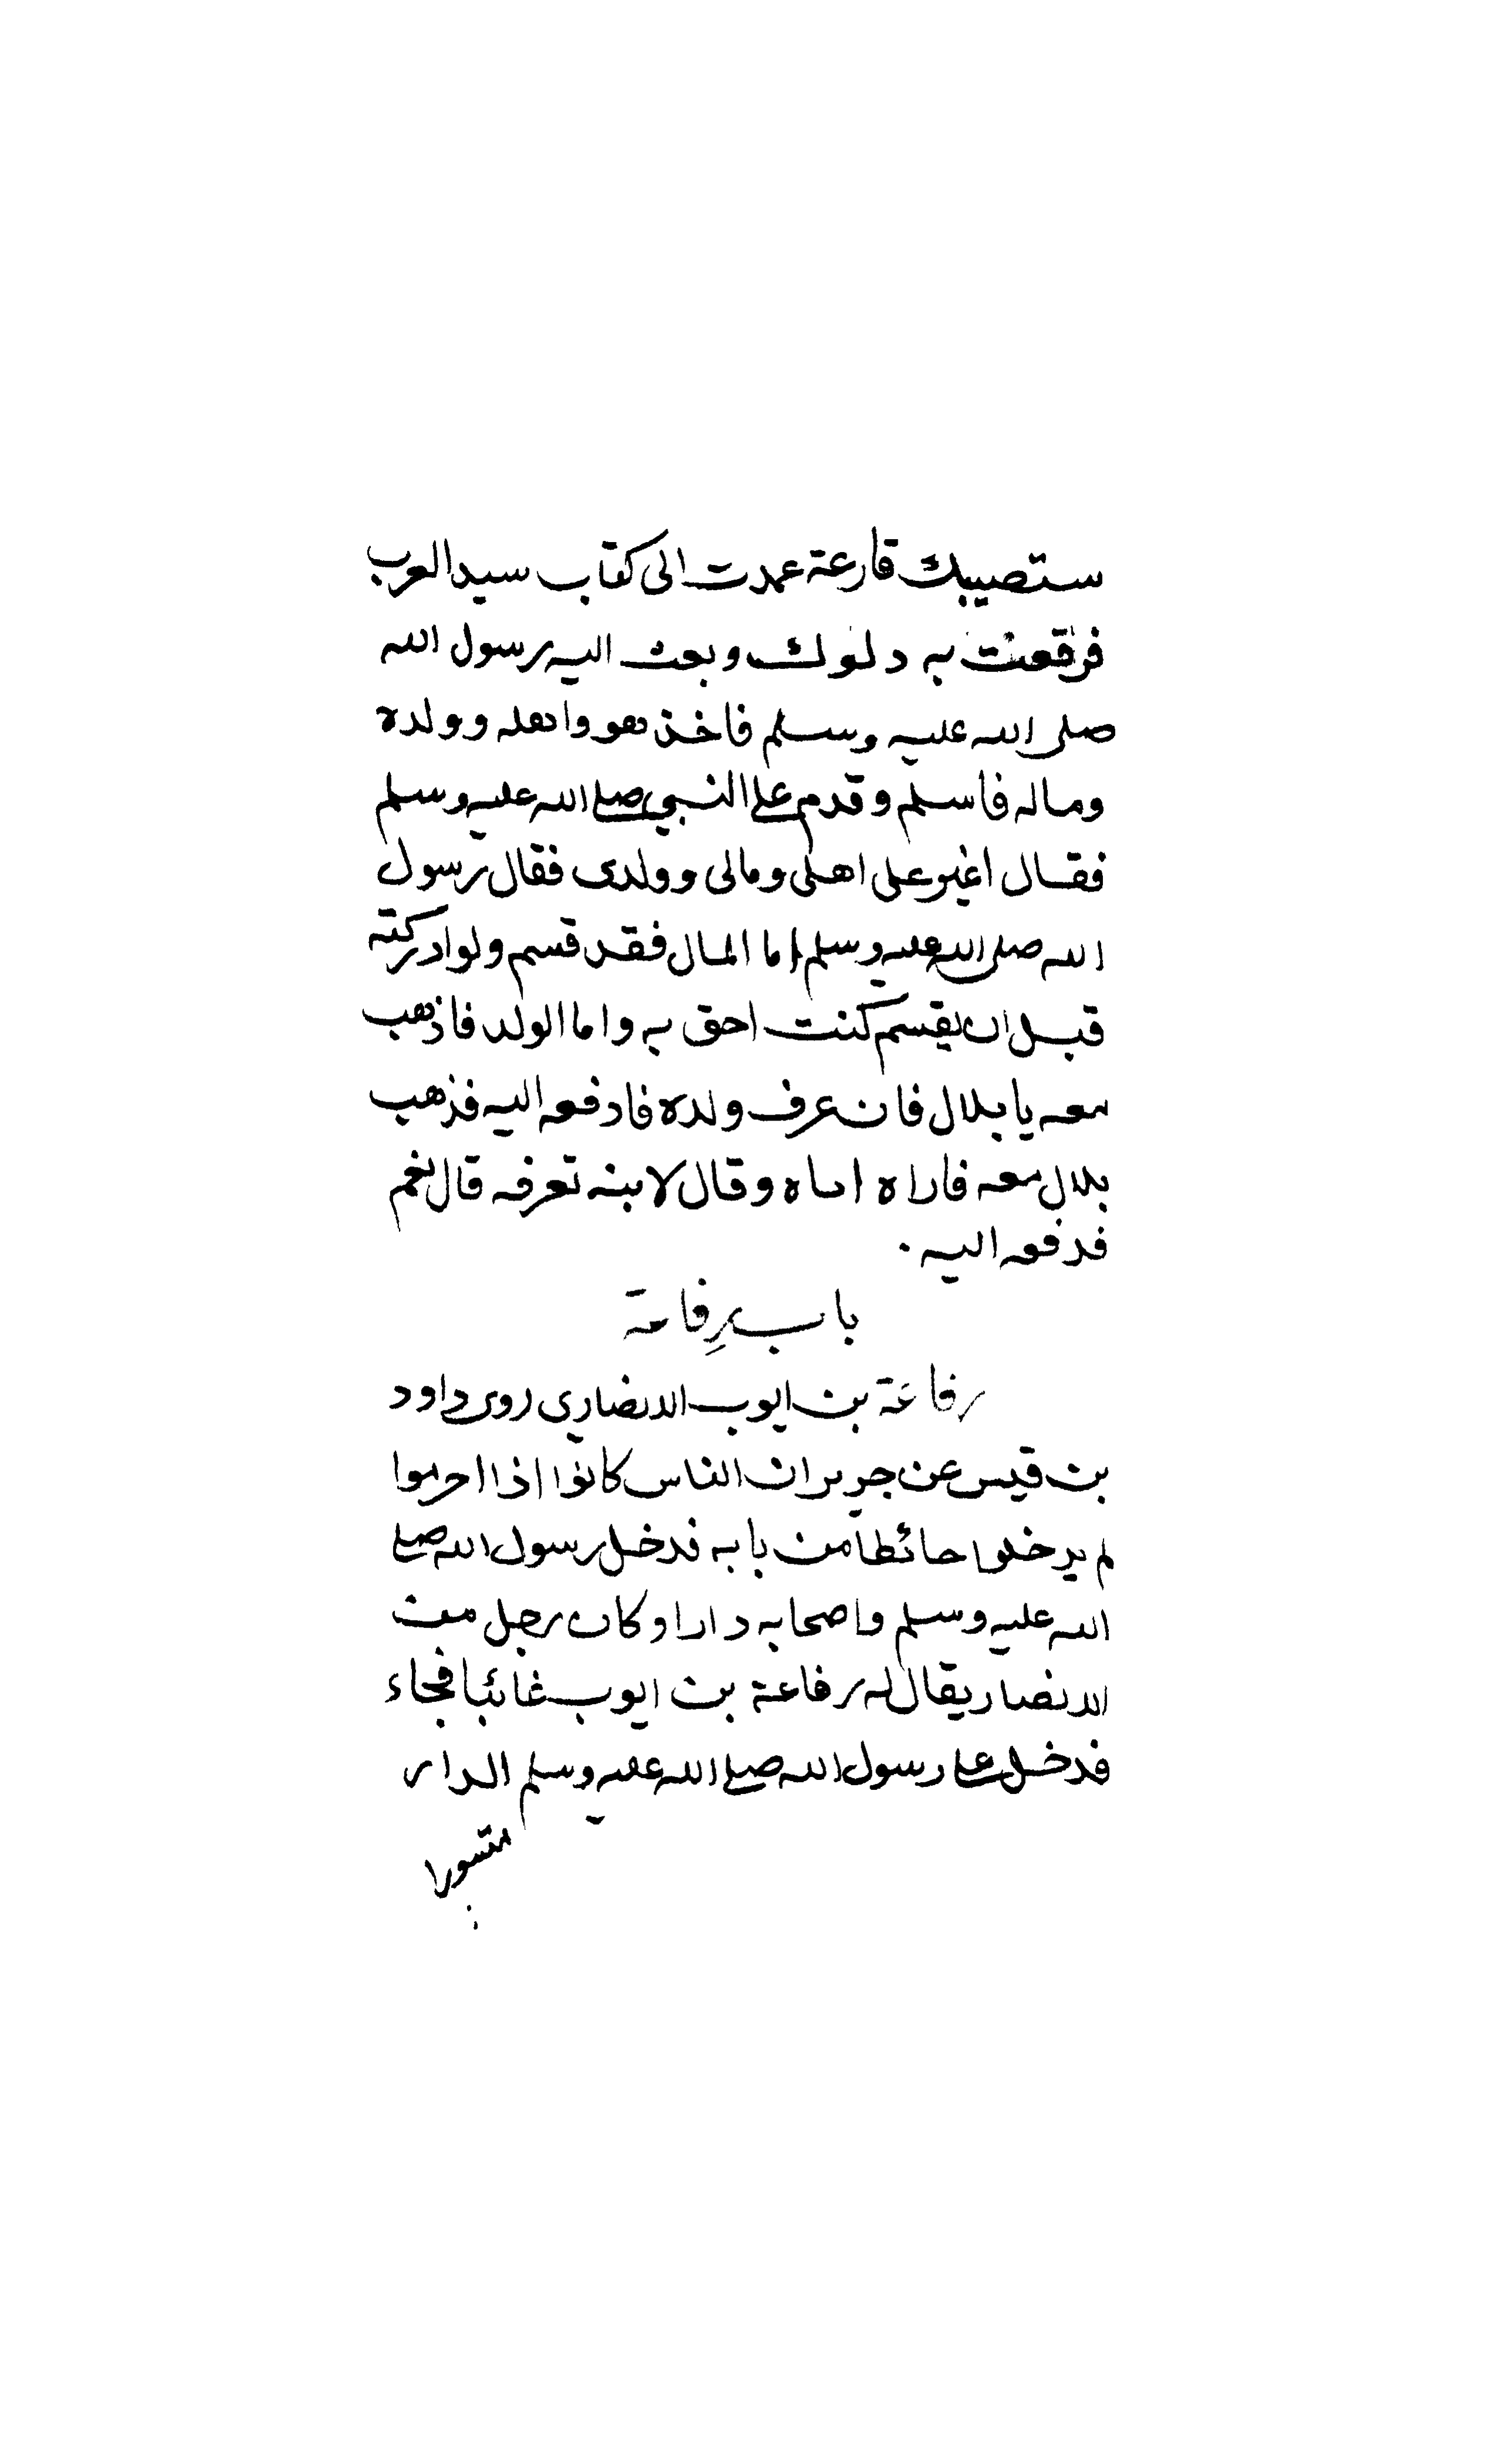 ستصيبك قارعة عمدت الى كتاب سيد العرب
فرقعت به دلوك وبعث اليه رسول الله
صلى الله عليه وسلم فاخذ هو واهله وولده
وماله فاسلم وقدم على النبي صلى الله عليه وسلم
فقال اغير على اهلى ومالى وولدى فقال رسول
الله صلى الله عليه وسلم اما المال فقد قسم ولو ادركته
قبل ان يقسم كنت احق به واما الولد فاذهب
معه يا بلال فان عرف ولده فادفعه اليه فذهب
بلال معه فاراه اياه وقال لابنه تعرفه قال نعم
فدفعه اليه .
باب رِفاعة
رفاعة بن ايوب الانصاري روى داود
بن قيس عن جرير ان الناس كانوا اذا احرموا
لم يدخلوا حائطا من بابه فدخل رسول الله صلى
الله عليه وسلم واصحابه دارا وكان رجل من
الانصار يقال له رفاعة بن ايوب غائبا فجاء
فدخل على رسول الله صلى الله عليه وسلم الدار
متسورا